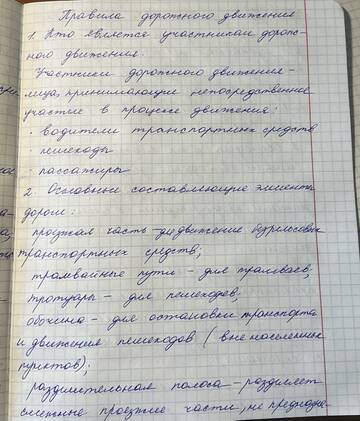 Правила дорожного движения
1. Кто является участником дорож-
ного движения.
Участники дорожного движения -
лица, принимающие непосредственное
участие в процессе движения:
· водители транспортных средств
· пешеходы
· пассажиры
2. Основные составляющие элементы
дороги:
проезжая часть - для движения безрельсовых
транспортных средств;
трамвайные пути - для трамваев;
тротуары - для пешеходов;
обочина - для остановки транспорта
и движения пешеходов (вне населенных
пунктов);
разделительная полоса - разделяет
смежные проезжие части, не предназна-